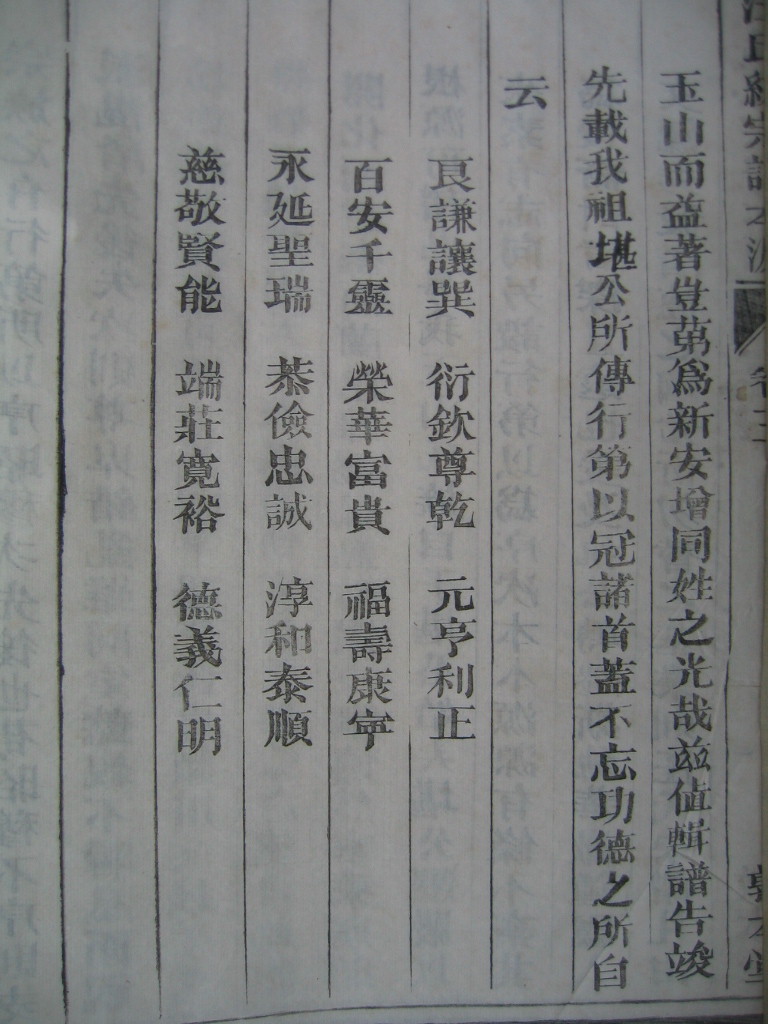 汪氏統宗譜本源 卷之二 敦本堂
玉山而益著豈苐為新安增同姓之光哉兹值輯譜告竣
先載我祖堪公所傳行第以冠諸首蓋不忘功德之所自
云
良謙讓巽 衍欽尊乾 元亨利正
百安千靈 榮華富貴 福壽康寧
永延聖瑞 恭儉忠誠 淳和泰順
慈敬賢能 端莊寬裕 德義仁明